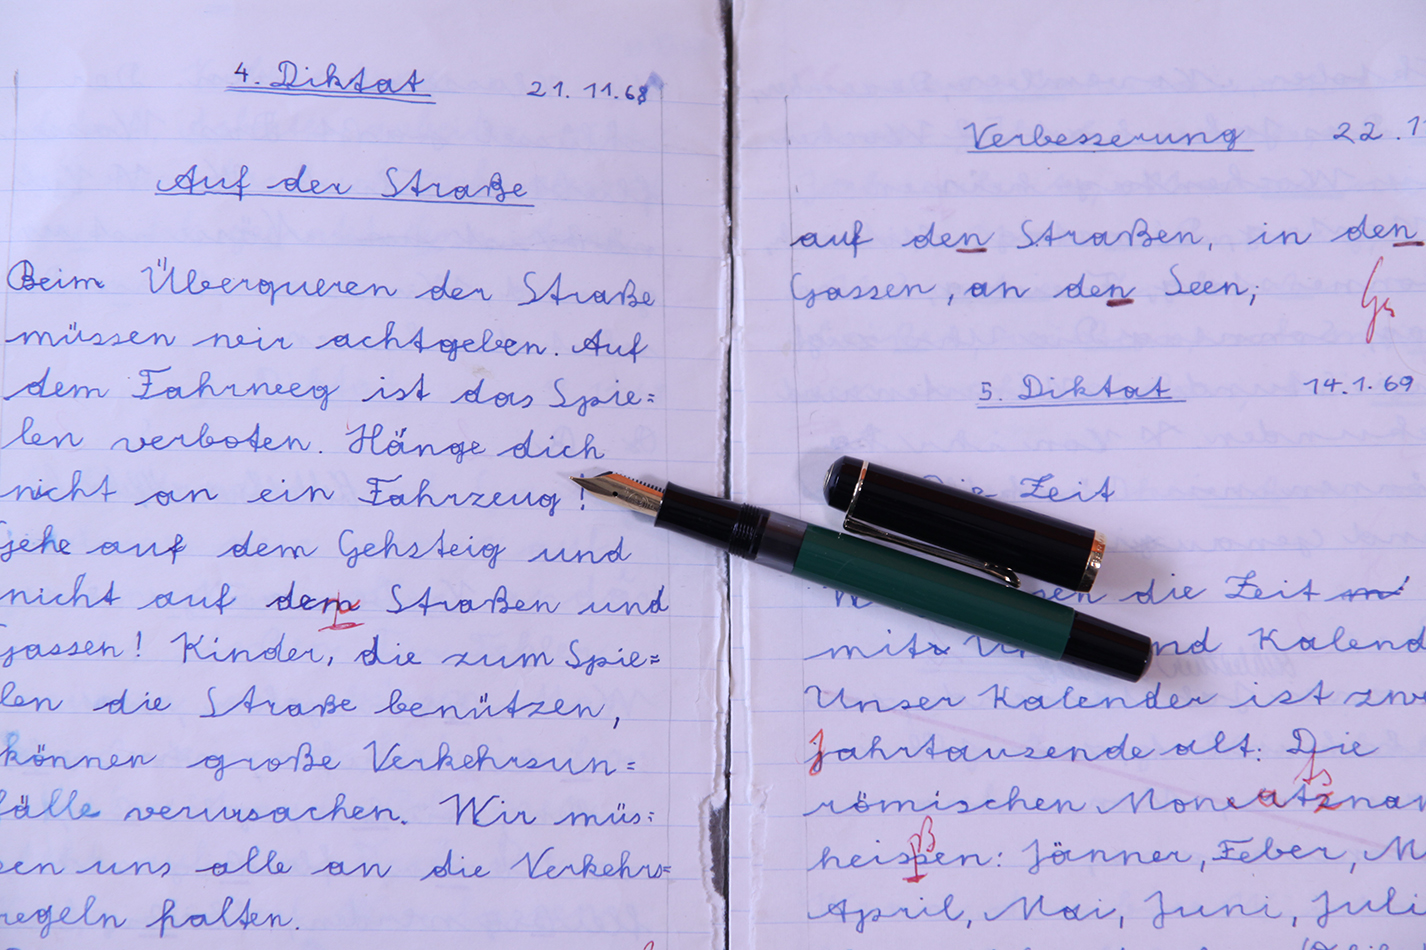 4. Diktat 21.11.68
Auf der Straße
Beim Überqueren der Straße
müssen wir achtgeben. Auf
dem Fahrweg ist das Spie=
len verboten. Hänge dich
nicht an ein Fahrzeug!
Gehe auf dem Gehsteig und
nicht auf dem Straßen und
Gassen! Kinder, die zum Spie=
len die Straße benützen,
können große Verkehrsun=
fälle verursachen. Wir müs=
sen uns alle an die Verkehrs=
regeln halten.
Verbesserung 22.1
auf den Straßen, in den
Gassen, an den Seen;
5. Diktat 14.1.69
Die Zeit
die Zeit
mit und Kalend
Unser Kalender ist zwe
Jahrtausende alt. Die
römischen Monatsnam
heißen: Jänner, Feber, M
April, Mai, Juni, Juli